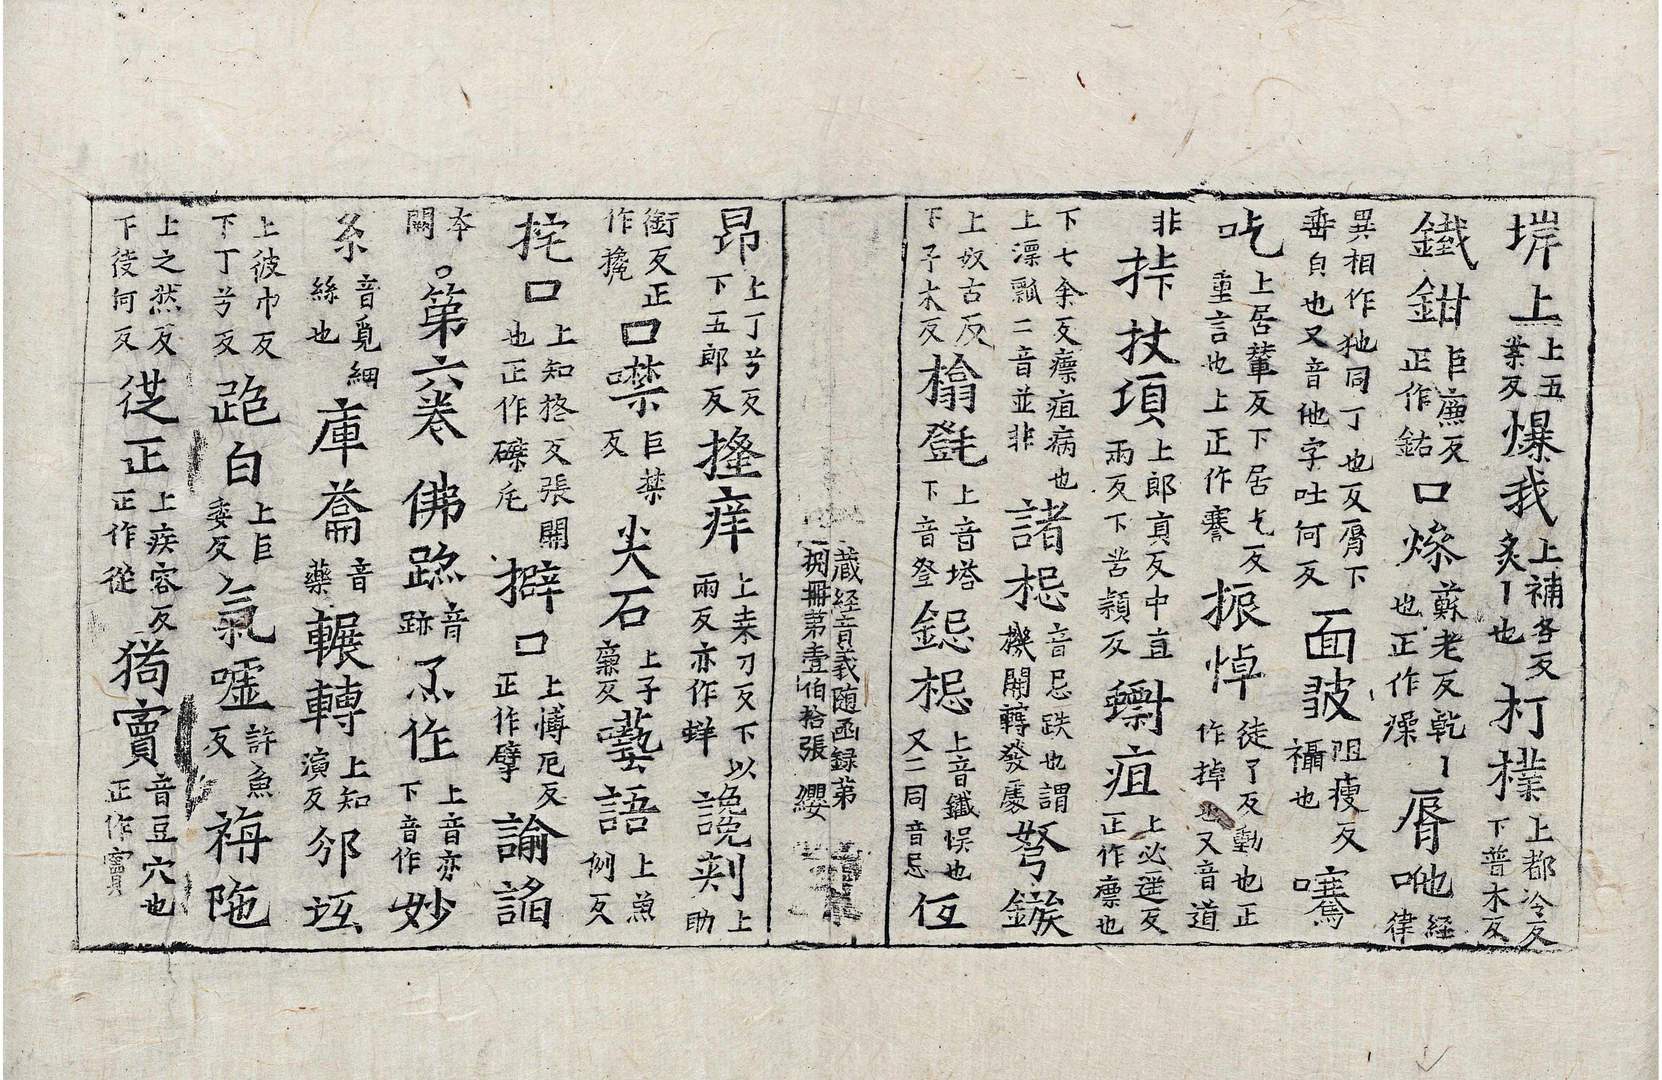 垪上上五業反爆我上補各反炙丨也打撲上都冷反下普木反
鐵鉗巨廉反正作鉆口燥蘇老反乾丨也正作燥脣吔經律
異相作狏同丁也反脣下垂㒵也又音他字吐何反面皷阻瘦反襵也騫
吃上居輦反下居乞反重言也上正作謇振悼徒了反動也正作掉也又音道
非挊杖項上郎真反中直兩反下苦顈反疽上必遥反正作瘭也
下七余反瘭疽病也上漂瓢二音並非諸梞音忌跌也謂機關轉發處弩鏃
上奴古反下子木反㯓㲪上音塔下音登鋕梞上音鐵悞也又二同音忌仾
藏経音義随函録第捌冊第壹伯拾張 纓
昂上丁兮反下五郎反搔痒上桒刀反下以兩反亦作蛘誂剡上助
銜反正作攙口噤巨禁反反尖石上子廉反藝語上魚例反
挓口上知挌反張開也正作磔乇擗口上博厄反正作擘諭諂
本闕。第六卷佛跡音跡尒作上音亦下音作妙
糸音覓細絲也庫蘥音藥輾轉上知演反邠坻
上彼巾反下丁兮反跪白上巨委反氣噓許魚反祷陁
上之然反下徒何反從正上疾容反正作從㺃竇音豆穴也正作竇